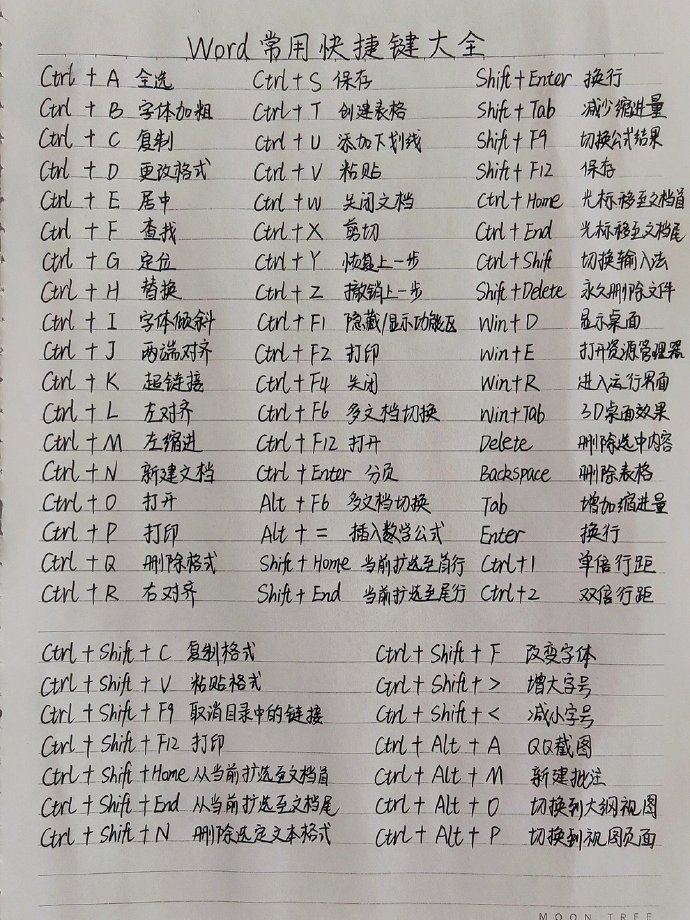 Word常用快捷键大全
Ctrl + A 全选 Ctrl + S 保存 Shift + Enter 换行
Ctrl + B 字体加粗 Ctrl + T 创建表格 Shift + Tab 减少缩进量
Ctrl + C 复制 Ctrl + U 添加下划线 Shift + F9 切换公式结果
Ctrl + D 更改格式 Ctrl + V 粘贴 Shift + F12 保存
Ctrl + E 居中 Ctrl + W 关闭文档 Ctrl + Home 光标移至文档首
Ctrl + F 查找 Ctrl + X 剪切 Ctrl + End 光标移至文档尾
Ctrl + G 定位 Ctrl + Y 恢复上一步 Ctrl + Shift 切换输入法
Ctrl + H 替换 Ctrl + Z 撤销上一步 Shift + Delete 永久删除文件
Ctrl + I 字体倾斜 Ctrl + F1 隐藏/显示功能区 Win + D 显示桌面
Ctrl + J 两端对齐 Ctrl + F2 打印 Win + E 打开资源管理器
Ctrl + K 超链接 Ctrl + F4 关闭 Win + R 进入运行界面
Ctrl + L 左对齐 Ctrl + F6 多文档切换 Win + Tab 3D桌面效果
Ctrl + M 左缩进 Ctrl + F12 打开 Delete 删除选中内容
Ctrl + N 新建文档 Ctrl + Enter 分页 Backspace 删除表格
Ctrl + O 打开 Alt + F6 多文档切换 Tab 增加缩进量
Ctrl + P 打印 Alt + = 插入数学公式 Enter 换行
Ctrl + Q 删除格式 Shift + Home 当前扩选至首行 Ctrl + 1 单倍行距
Ctrl + R 右对齐 Shift + End 当前扩选至尾行 Ctrl + 2 双倍行距
Ctrl + Shift + C 复制格式 Ctrl + Shift + F 改变字体
Ctrl + Shift + V 粘贴格式 Ctrl + Shift + > 增大字号
Ctrl + Shift + F9 取消目录中的链接 Ctrl + Shift + < 减小字号
Ctrl + Shift + F12 打印 Ctrl + Alt + A QQ截图
Ctrl + Shift + Home 从当前扩选至文档首 Ctrl + Alt + M 新建批注
Ctrl + Shift + End 从当前扩选至文档尾 Ctrl + Alt + O 切换到大纲视图
Ctrl + Shift + N 删除选定文本格式 Ctrl + Alt + P 切换到视图页面
MOON TREE